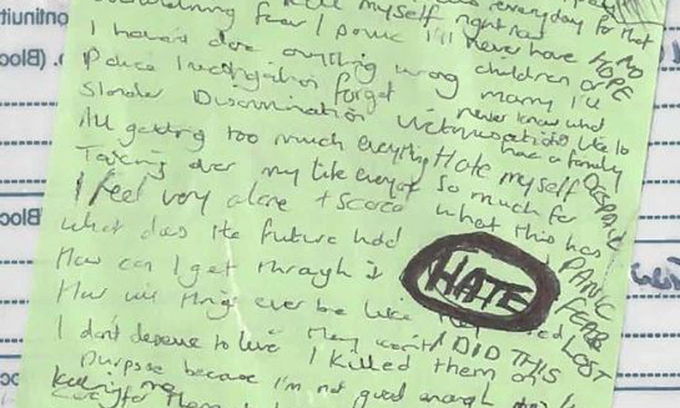 everyday for that
overwhelming fear / panic
kill myself right now
I'll never have
NO HOPE
I haven't done anything wrong
children or
marry I'll
Police Investigation forget
never know what
Slander Discrimination Victimisation
its like to
have a family
All getting too much everything
Hate myself
DESPAIR
Taking over my life everyday
so much for
I feel very alone + scared
what this has
what does the future hold
PANIC
How can I get through it
HATE
FEAR
How will things ever be like
LOST
I don't deserve to live
I DID THIS
I killed them on
purpose because I'm not good enough
killing me